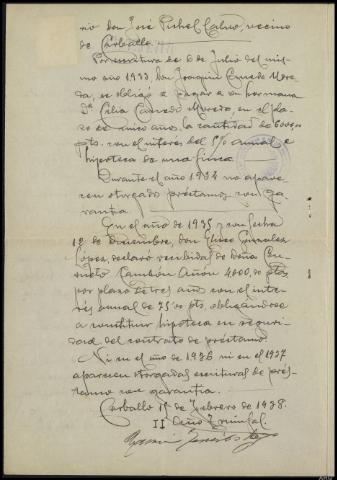 rio don José Pichel Calvo, vecino
de Carballo.
Por escritura de 6 de Julio del mis-
mo año 1933, Don Joaquín
da, se obligó a pagar a su hermana
Dª Celia en el pla-
zo de cinco años, la cantidad de 6000,00
pts. con el interés del 5% anual e
hipoteca de una finca.
Durante el año 1934 no apare-
cen otorgados préstamos con ga-
rantía.
En el año de 1935 y con fecha
12 de Diciembre, don Eliseo Gonzalez
Lopez, declaró recibidas de Doña
Cambón Añón 4000,00 ptas
por plazo de tres años con el inte-
rés anual de pts, obligándose
a constituir hipoteca en seguri-
dad del contrato de préstamo.
Ni en el año de 1936 ni en el 1937
aparecen otorgadas escrituras de prés-
tamo con garantía.
Carballo 15 de Febrero de 1938.
II Año Triunfal.